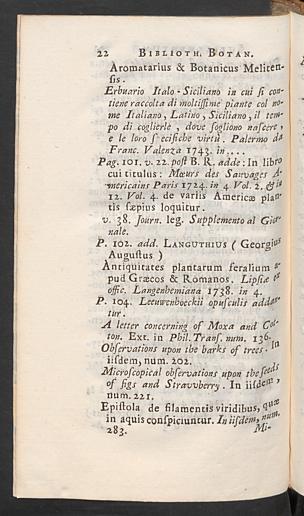 22 BIBLIOTH. BOTAN.
Aromatarius & Botanicus Meliten-
sis.
Erbuario Italo-Siciliano in cui si con-
tiene raccolta di moltissime piante col no-
me Italiano, Latino, Siciliano, il tem-
po di coglierle, dove sogliono nascere,
e le loro specifiche virtù. Palermo da
Franc. Valenza 1743. in...
Pag. 101. v. 22. post B. R. adde: In libro
cui titulus: Mœurs des Sauvages A-
mericains Paris 1724. in 4 Vol. 2. & in
12. Vol. 4. de variis Americæ plan-
tis sæpius loquitur.
v. 38. Journ. leg. Supplemento al Gior-
nale.
P. 102. add. LANGUTHIUS ( Georgius
Augustus )
Antiquitates plantarum feralium a-
pud Græcos & Romanos. Lipsiæ ex
offic. Langenhemiana 1738. in 4.
P. 104. Leeuwenhoeckii opusculis addan-
tur.
A letter concerning of Moxa and Cot-
ton. Ext. in Phil. Trans. num. 136.
Observations upon the barks of trees. In
iisdem, num. 202.
Microscopical observations upon the seeds
of figs and Stravvberry. In iisdem,
num. 221.
Epistola de filamentis viridibus, quæ
in aquis conspiciuntur. In iisdem, num.
283. Mi-